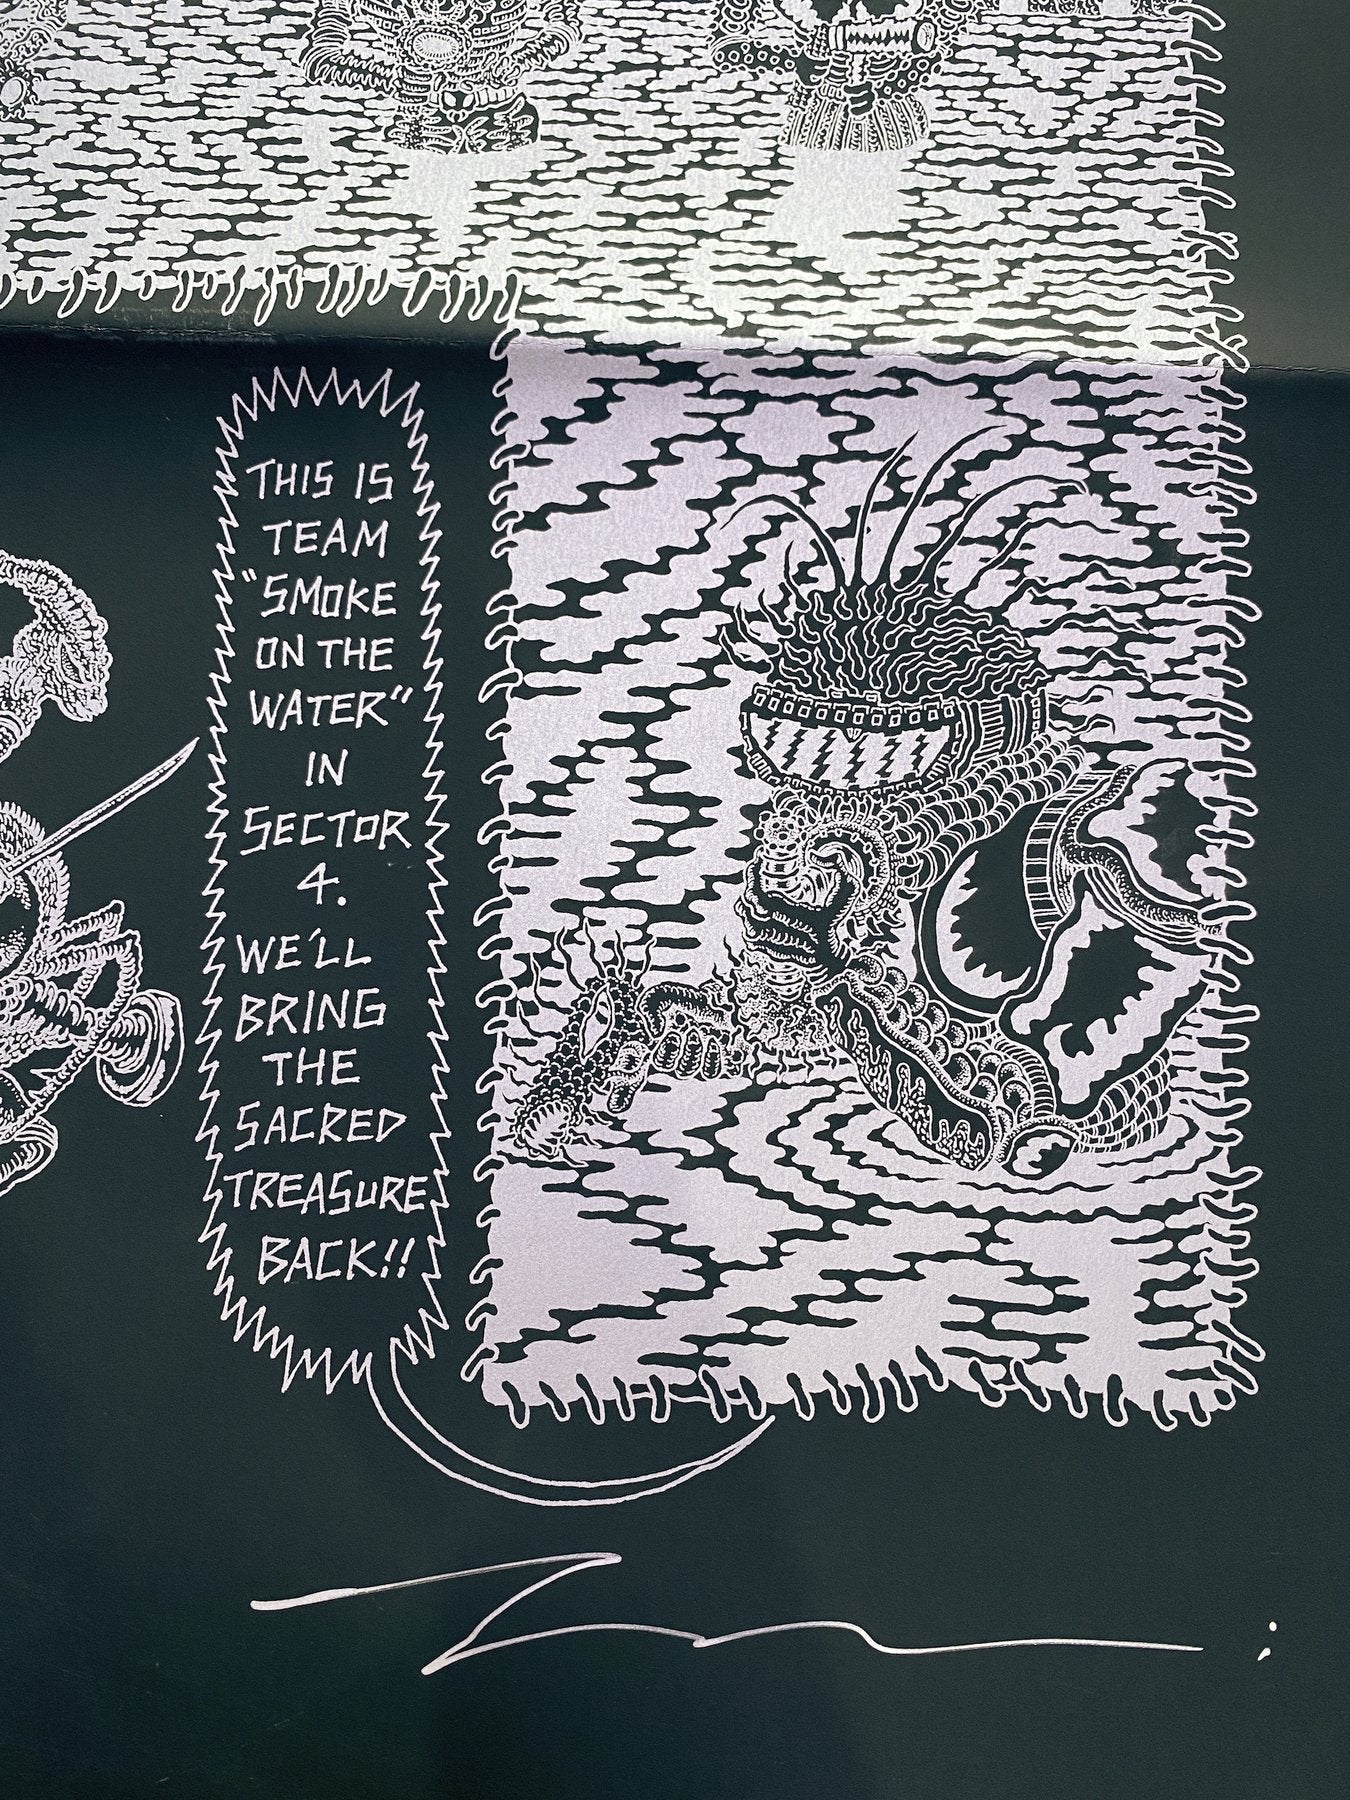 THIS IS
TEAM
"SMOKE
ON THE
WATER"
IN
SECTOR
4.
WE'LL
BRING
THE
SACRED
TREASURE
BACK!!